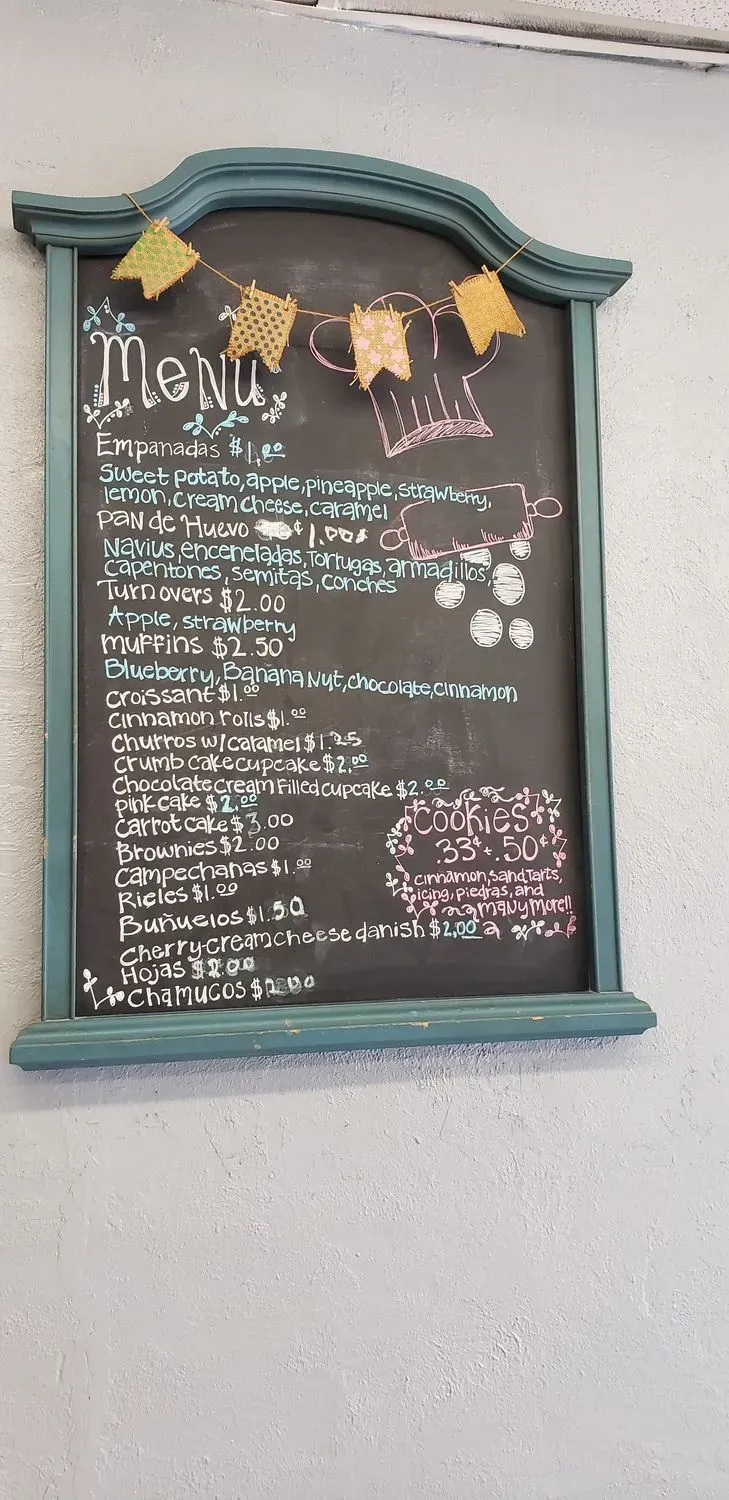 Menu
Empanadas $1.00
Sweet potato, apple, pineapple, strawberry,
lemon, cream cheese, caramel
Pan de Huevo ¢ 1.00
Navius, enceneladas, Tortugas, armadillos,
capentones, semitas, conches
Turnovers $2.00
Apple, strawberry
muffins $2.50
Blueberry, Banana Nut, chocolate, cinnamon
croissant $1.00
cinnamon rolls $1.00
churros w/ caramel $1.25
crumb cake cupcake $2.00
chocolate cream filled cupcake $2.00
pink cake $2.00
carrot cake $3.00
Brownies $2.00
campechanas $1.00
Rieles $1.00
Buñuelos $1.50
Cherry-cream cheese danish $2.00
Hojas $2.00
Chamucos $2.00
Cookies
.33¢ + .50¢
cinnamon, sand tarts,
icing, piedras, and
many more!!